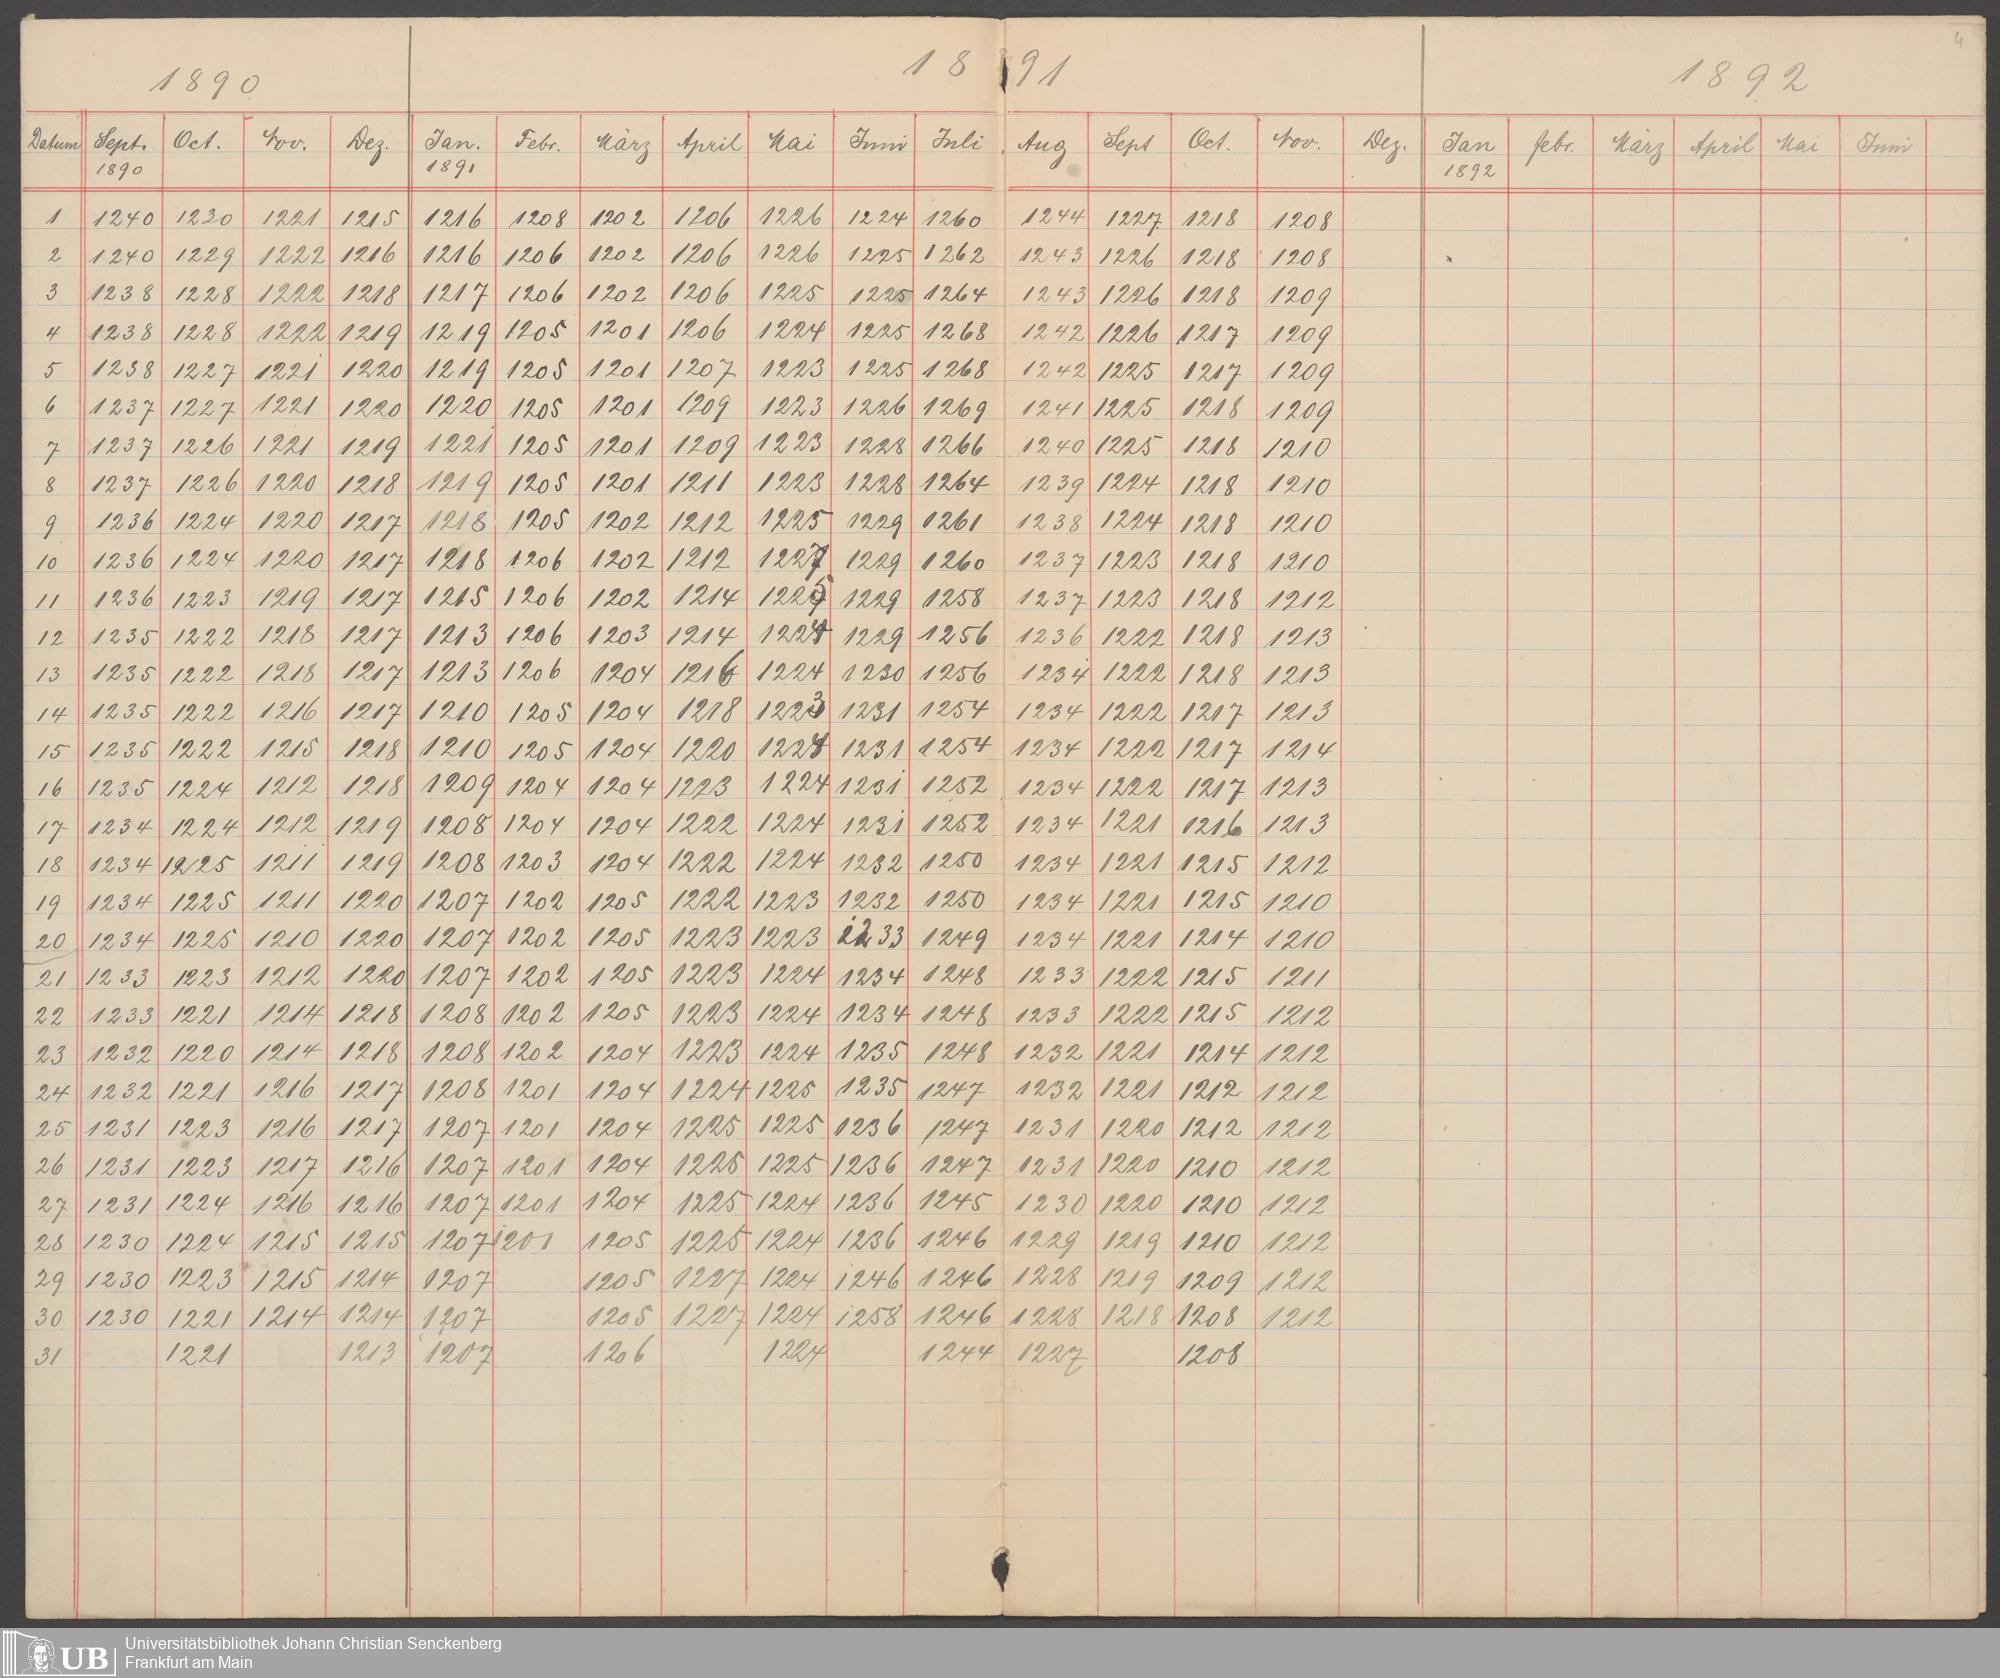 4
1890 1891 1892
Datum Sept. Oct. Nov. Dez. Jan. Febr. März April Mai Juni Juli Aug Sept Oct. Nov. Dez. Jan Febr. März April Mai Juni
1890 1891 1892
1 1240 1230 1221 1215 1216 1208 1202 1206 1226 1224 1260 1244 1227 1218 1208
2 1240 1229 1222 1216 1216 1206 1202 1206 1226 1225 1262 1243 1226 1218 1208
3 1238 1228 1222 1218 1217 1206 1202 1206 1225 1225 1264 1243 1226 1218 1209
4 1238 1228 1222 1219 1219 1205 1201 1206 1224 1225 1268 1242 1226 1217 1209
5 1238 1227 1221 1220 1219 1205 1201 1207 1223 1225 1268 1242 1225 1217 1209
6 1237 1227 1221 1220 1220 1205 1201 1209 1223 1226 1269 1241 1225 1218 1209
7 1237 1226 1221 1219 1221 1205 1201 1209 1223 1228 1266 1240 1225 1218 1210
8 1237 1226 1220 1218 1219 1205 1201 1211 1223 1228 1264 1239 1224 1218 1210
9 1236 1224 1220 1217 1218 1205 1202 1212 1225 1229 1261 1238 1224 1218 1210
10 1236 1224 1220 1217 1218 1206 1202 1212 1227 1229 1260 1237 1223 1218 1210
11 1236 1223 1219 1217 1215 1206 1202 1214 1225 1229 1258 1237 1223 1218 1212
12 1235 1222 1218 1217 1213 1206 1203 1214 1224 1229 1256 1236 1222 1218 1213
13 1235 1222 1218 1217 1213 1206 1204 1216 1224 1230 1256 1234 1222 1218 1213
14 1235 1222 1216 1217 1210 1205 1204 1218 1223 1231 1254 1234 1222 1217 1213
15 1235 1222 1215 1218 1210 1205 1204 1220 1224 1231 1254 1234 1222 1217 1214
16 1235 1224 1212 1218 1209 1204 1204 1223 1224 1231 1252 1234 1222 1217 1213
17 1234 1224 1212 1219 1208 1204 1204 1222 1224 1231 1252 1234 1221 1216 1213
18 1234 1225 1211 1219 1208 1203 1204 1222 1224 1232 1250 1234 1221 1215 1212
19 1234 1225 1211 1220 1207 1202 1205 1222 1223 1232 1250 1234 1221 1215 1210
20 1234 1225 1210 1220 1207 1202 1205 1223 1223 1233 1249 1234 1221 1214 1210
21 1233 1223 1212 1220 1207 1202 1205 1223 1224 1234 1248 1233 1222 1215 1211
22 1233 1221 1214 1218 1208 1202 1205 1223 1224 1234 1248 1233 1222 1215 1212
23 1232 1220 1214 1218 1208 1202 1204 1223 1224 1235 1248 1232 1221 1214 1212
24 1232 1221 1216 1217 1208 1201 1204 1224 1225 1235 1247 1232 1221 1212 1212
25 1231 1223 1216 1217 1207 1201 1204 1225 1225 1236 1247 1231 1220 1212 1212
26 1231 1223 1217 1216 1207 1201 1204 1225 1225 1236 1247 1231 1220 1210 1212
27 1231 1224 1216 1216 1207 1201 1204 1225 1224 1236 1245 1230 1220 1210 1212
28 1230 1224 1215 1215 1207 1201 1205 1225 1224 1236 1246 1229 1219 1210 1212
29 1230 1223 1215 1214 1207 1205 1227 1224 1246 1246 1228 1219 1209 1212
30 1230 1221 1214 1214 1207 1205 1227 1224 1258 1246 1228 1218 1208 1212
31 1221 1213 1207 1206 1224 1244 1227 1208
UB Universitätsbibliothek Johann Christian Senckenberg
Frankfurt am Main